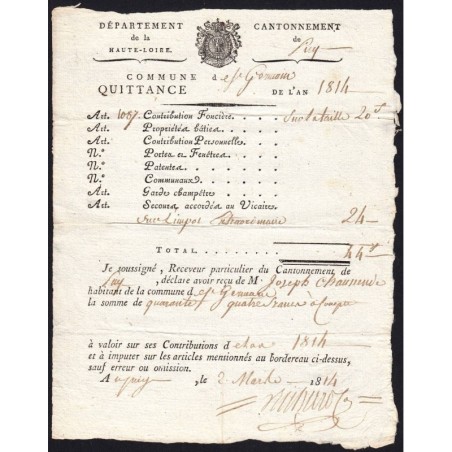 DÉPARTEMENT
de la
HAUTE-LOIRE.
CANTONNEMENT
de
Puy
COMMUNE d
QUITTANCE DE L'AN 1814
Art. 1087 Contribution Foncière. Sur la taille 20
Art. Propriétés bâties
Art. Contribution Personnelle
N.º Portes et Fenêtres
N.º Patentes
N.º Communaux
Art. Garde champêtre
Art. Secours accordés au Vicaire
Sur L'impot Extraordinaire 24
TOTAL 44
Je soussigné, Receveur particulier du Cantonnement de
Puy, déclare avoir reçu de M. Joseph
habitant de la commune d
la somme de quarante quatre francs
à valoir sur ses Contributions d 1814
et à imputer sur les articles mentionnés au bordereau ci-dessus,
sauf erreur ou omission.
A , le 2 1814